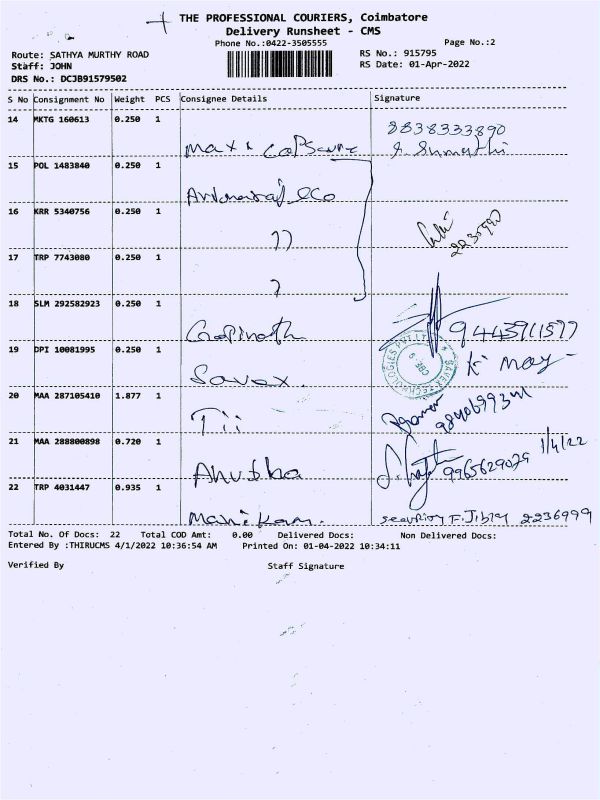 THE PROFESSIONAL COURIERS, Coimbatore
Delivery Runsheet - CMS
Phone No.:0422-3505555
Page No.:2
Route: SATHYA MURTHY ROAD
RS No.: 915795
Staff: JOHN
RS Date: 01-Apr-2022
DRS No.: DCJB91579502
S No Consignment No Weight PCS Consignee Details Signature
14 MKTG 160613 0.250 1
8838333890
Max
15 POL 1483840 0.250 1
eco
16 KRR 5340756 0.250 1
))
17 TRP 7743080 0.250 1
18 SLM 292582923 0.250 1
Gopinath
19 DPI 10081995 0.250 1
Savex.
20 MAA 287105410 1.877 1
Tii
21 MAA 288800898 0.720 1
1/4/22
9965629029
22 TRP 4031447 0.935 1
security 2236999
Total No. Of Docs: 22 Total COD Amt: 0.00 Delivered Docs: Non Delivered Docs:
Entered By :THIRUCMS 4/1/2022 10:36:54 AM Printed On: 01-04-2022 10:34:11
Verified By Staff Signature